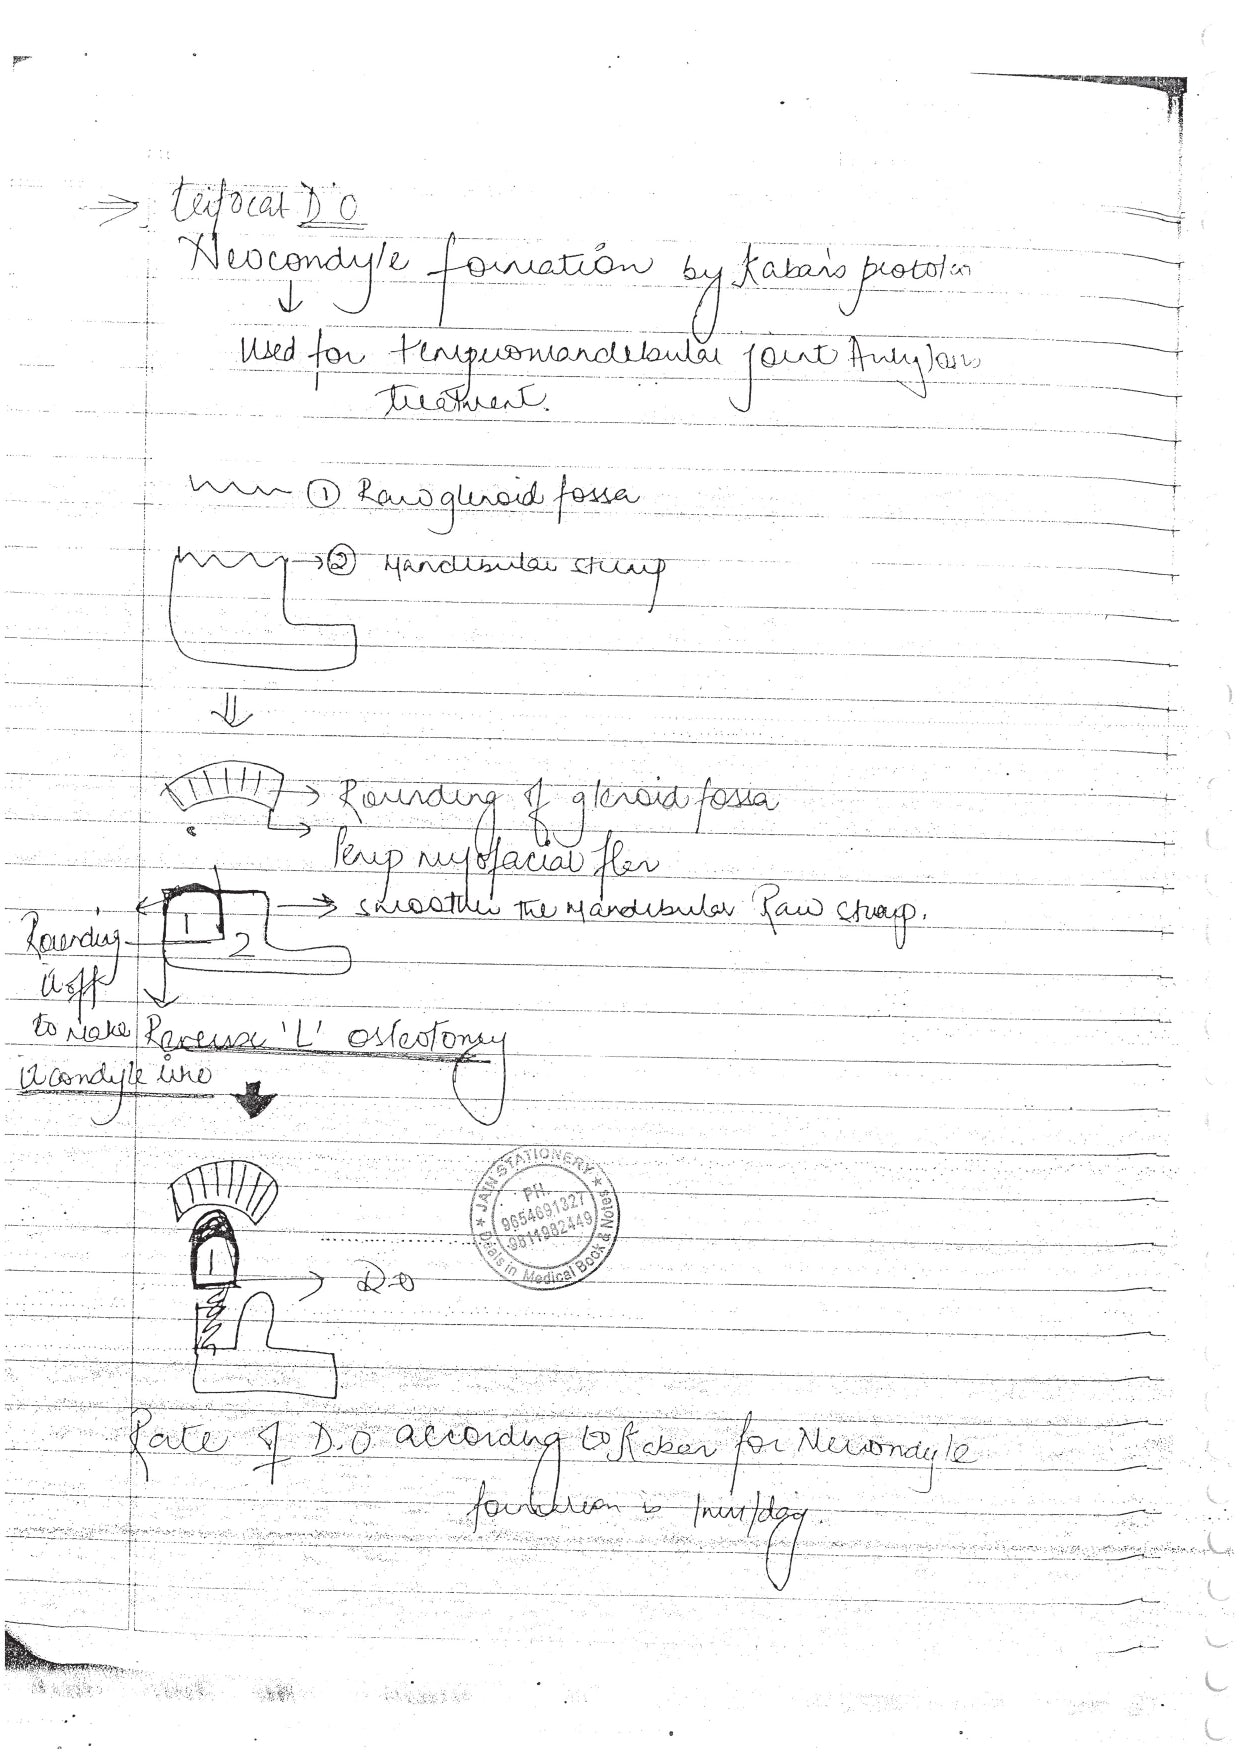 trifocal D'O
Neocondyle formation by Kaban's protocol
Used for temporomandibular joint Ankylosis
treatment.
① Raw glenoid fossa
② Mandibular stump
Rounding of glenoid fossa
Temp myofacial flap
Smoother the Mandibular Raw stump.
1
2
Rounding
it off
to make
a condyle like
Reverse 'L' osteotomy
★ JAIN STATIONERY ★
PH.
9654691327
9811982449
Deals in Medical Book & Notes
1
D-O
Rate of D.O according to Kaban for Neocondyle
formation is 1mm/day.